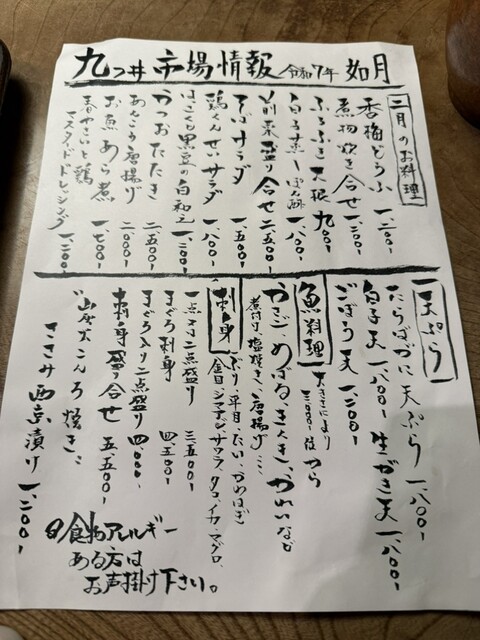 九つ井 市場情報 令和7年 如月
二月のお料理
香梅どうふ 一、二〇〇-
煮物炊き合せ 一、二〇〇-
ふろふき大根 九〇〇-
白子煮 ぽん酢 一、八〇〇-
前菜盛り合せ 二、五〇〇-
そばサラダ 一、五〇〇-
鶏くんせいサラダ 一、八〇〇-
はまぐり 黒豆の白和え 一、二〇〇-
かつおたたき 二、五〇〇-
あんこう唐揚げ 二、〇〇〇-
お魚あら煮 一、七〇〇-
春やさいと鶏
マスタードドレッシング 一、二〇〇-
天ぷら
たらばがに天ぷら 一、八〇〇-
白子天 一、八〇〇- 生がき天 一、八〇〇-
ごぼう天 一、二〇〇-
魚料理 大きさにより 三〇〇〇位から
かさご、めばる、きんき、かれいなど
煮付け、塩焼き、唐揚げ…
刺身 ぶり、平目、たい、かわはぎ
金目、シマアジ、サワラ、タコ、イカ、マグロ、
一点または二点盛り 三、五〇〇-
まぐろ刺身 四、五〇〇-
まぐろ入り二点盛り 四、〇〇〇-
刺身盛り合せ 五、五〇〇-
"山廬大こんろ焼き"
ささみ西京漬り 一、二〇〇-
食物アレルギー
ある方は
お声掛け下さい。